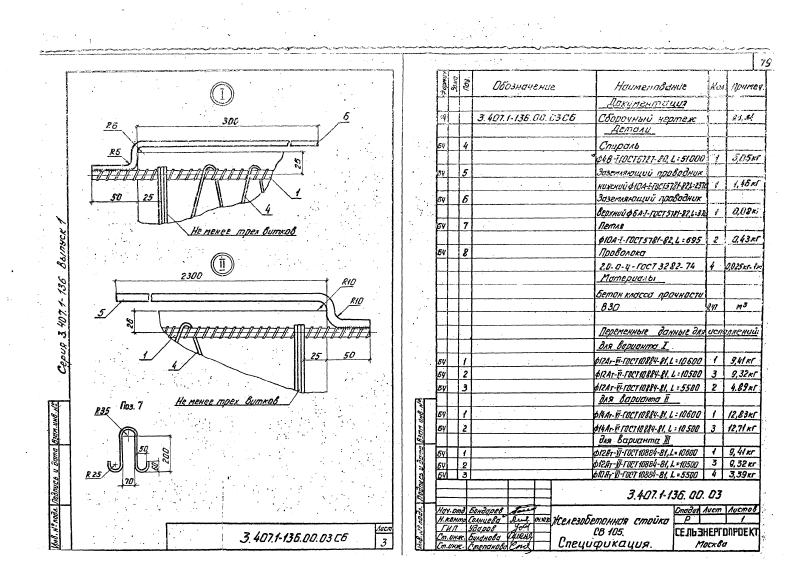 79
I
300
R6
6
R5
25
50
25
4
1
Не менее трех витков
II
2300
R10
R10
5
25
1
4
25
50
Не менее трех витков
Поз. 7
R35
50
200
R25
70
Серия 3.407.1-136 Выпуск 1
Инв.№ подл. Подпись и дата Взам.инв.№
3.407.1-136.00.03СБ
Лист
3
Формат Зона Поз. Обозначение Наименование Кол. Примеч.
Документация
3.407.1-136.00.03СБ Сборочный чертеж
Детали
БЧ 4 Спираль
ф4В-I-ГОСТ6727-80, L=51000 1 5,05кг
БЧ 5 Заземляющий проводник
нижний ф10А-I-ГОСТ5781-82, 1 1,46кг
БЧ 6 Заземляющий проводник
верхний ф6А-I-ГОСТ5781-82, 1 0,08кг
БЧ 7 Петля
ф10А-I-ГОСТ5781-82, L=695 2 0,43кг
БЧ 8 Проволока
2,0-0-Ч-ГОСТ 3282-74 4
Материалы
Бетон класса прочности
В30 м³
Переменные данные для исполнений:
для варианта I
БЧ 1 ф12Ат-V-ГОСТ10884-81, L=10600 1 9,41кг
БЧ 2 ф12Ат-V-ГОСТ10884-81, L=10500 3 9,32кг
БЧ 3 ф12Ат-V-ГОСТ10884-81, L=5500 2 4,89кг
для варианта II
БЧ 1 ф14Ат-V-ГОСТ10884-81, L=10600 1 12,83кг
БЧ 2 ф14Ат-V-ГОСТ10884-81, L=10500 3 12,71кг
для варианта III
БЧ 1 ГОСТ10884-81, L=10600 1 9,41кг
БЧ 2 ГОСТ10884-81, L=10500 3 9,32кг
БЧ 3 ГОСТ10884-81, L=5500 4 3,39кг
Инв.№ подл. Подпись и дата Взам.инв.№
3.407.1-136.00.03
Нач.отд. Бондарев
Н.контр. Солнцева
ГИП Ударов
Ст.инж. Буланова
Ст.инж. Степанова
Железобетонная стойка
СВ 105.
Спецификация.
Стадия Лист Листов
Р 1
СЕЛЬЭНЕРГОПРОЕКТ
Москва